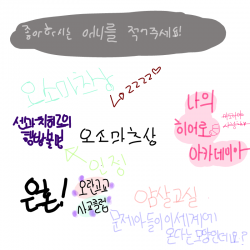 좋아하시는 애니를 적어주세요!
오소마츠상
2222
나의
히어로
아카데미아
오소마츠상
인정
은혼!
오란고교
사교클럽
암살교실
문제아들이 이세계에
온다는 모양인데요?